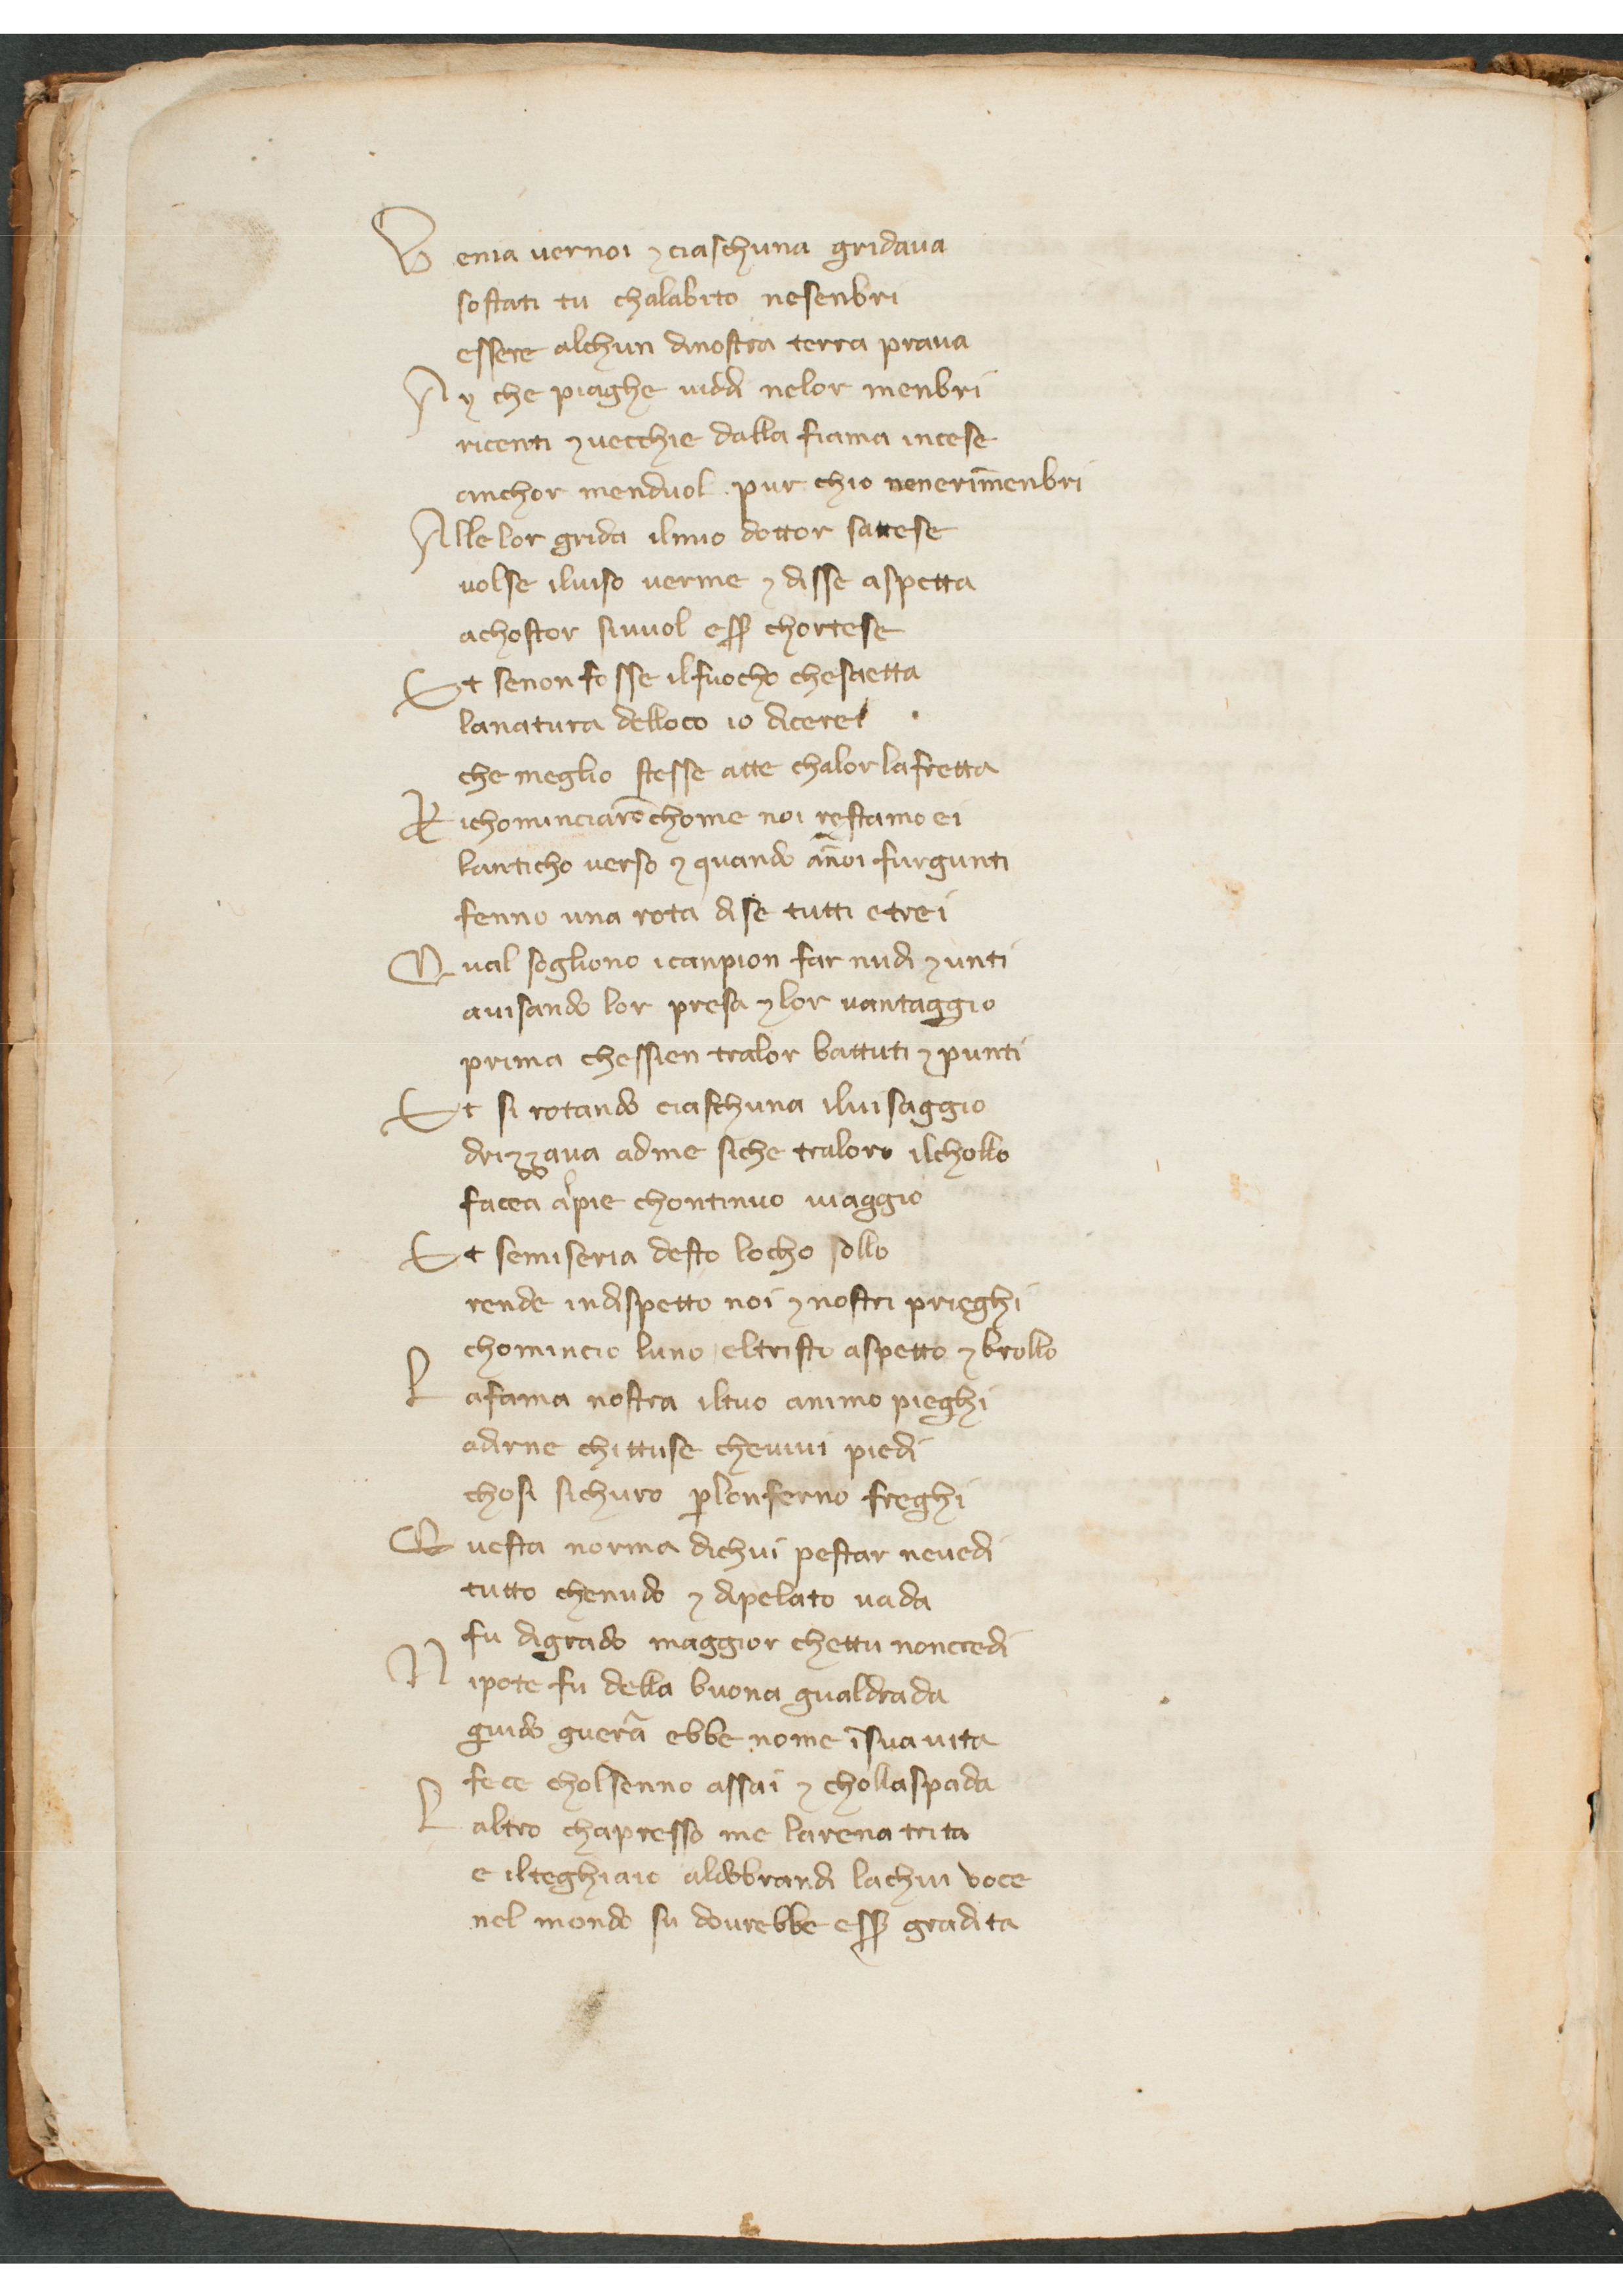 Venia uernoi ⁊ ciaschuna gridaua
sostati tu chalabito nesenbri
essere alchun dinostra terra praua
Ay che piaghe uiddi nelor menbri
ricenti ⁊ uecchie dalla fiama incese
anchor menduol pur chio nenerim̄enbri
Alle lor grida ilmio dottor sattese
uolse iluiso uerme ⁊ disse aspetta
achostor siuuol esse͛ chortese
Et senon fosse ilfuocho chesaetta
lanatura delloco io dicerei
che meglio stesse atte chalor lafretta
Richominciarō chome noi restamo ei
lanticho uerso ⁊ quando an̄oi furgunti
fenno una rota dise tutti etrei
Qual sogliono icanpion far nudi ⁊ unti
auisando lor presa ⁊ lor uantaggio
prima chessien tralor battuti ⁊ punti
Et si rotando ciaschuna iluisaggio
drizzaua adme siche traloro ilchollo
facea a pie chontinuo uiaggio
Et semiseria desto locho sollo
rende indispetto noi ⁊ nostri prieghi
chomincio luno eltristo aspetto ⁊ brollo
Lafama nostra iltuo animo pieghi
adirne chittuse cheuiui piedi
chosi sichuro ꝑlonferno freghi
Questa norma dichui pestar neuedi
tutto chenudo ⁊ dipelato uada
fu digrado maggior chettu noncredi
Nipote fu della buona gualdrada
guido guerā ebbe nome īsua uita
fece cholsenno assai ⁊ chollaspada
Laltro chapresso me larena trita
e ilteghiaio aldobrandi lachui voce
nel mondo su dourebbe esse͛ gradita